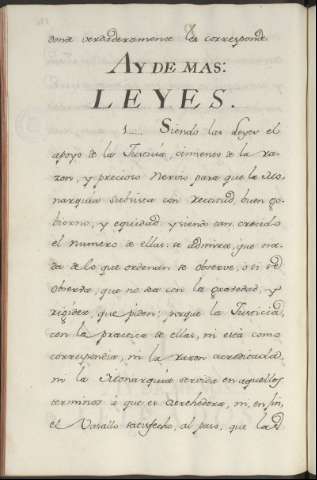 donde verdaderamente les corresponde
AY DE MAS:
LEYES.
1.... Siendo las Leyes el
apoyo de la Justicia, cimenos de la ra-
zon, y precioso Nervio para que la Mo-
narquia subsista con rectitud, buen go-
bierno, y equidad y siendo tan crecido
el numero de ellas: se admira, que na-
da de lo que ordenan se observe, o si se
observa, que no sea con la gravedad, y
rigidez, que piden; porque la Justicia,
con la practica de ellas, ni está como
correspondia, ni la razon acreditada,
ni la Monarquia servida en aquellos
terminos á que es acrehedora, ni, en fin,
el Vasallo satisfecho, al paso, que la